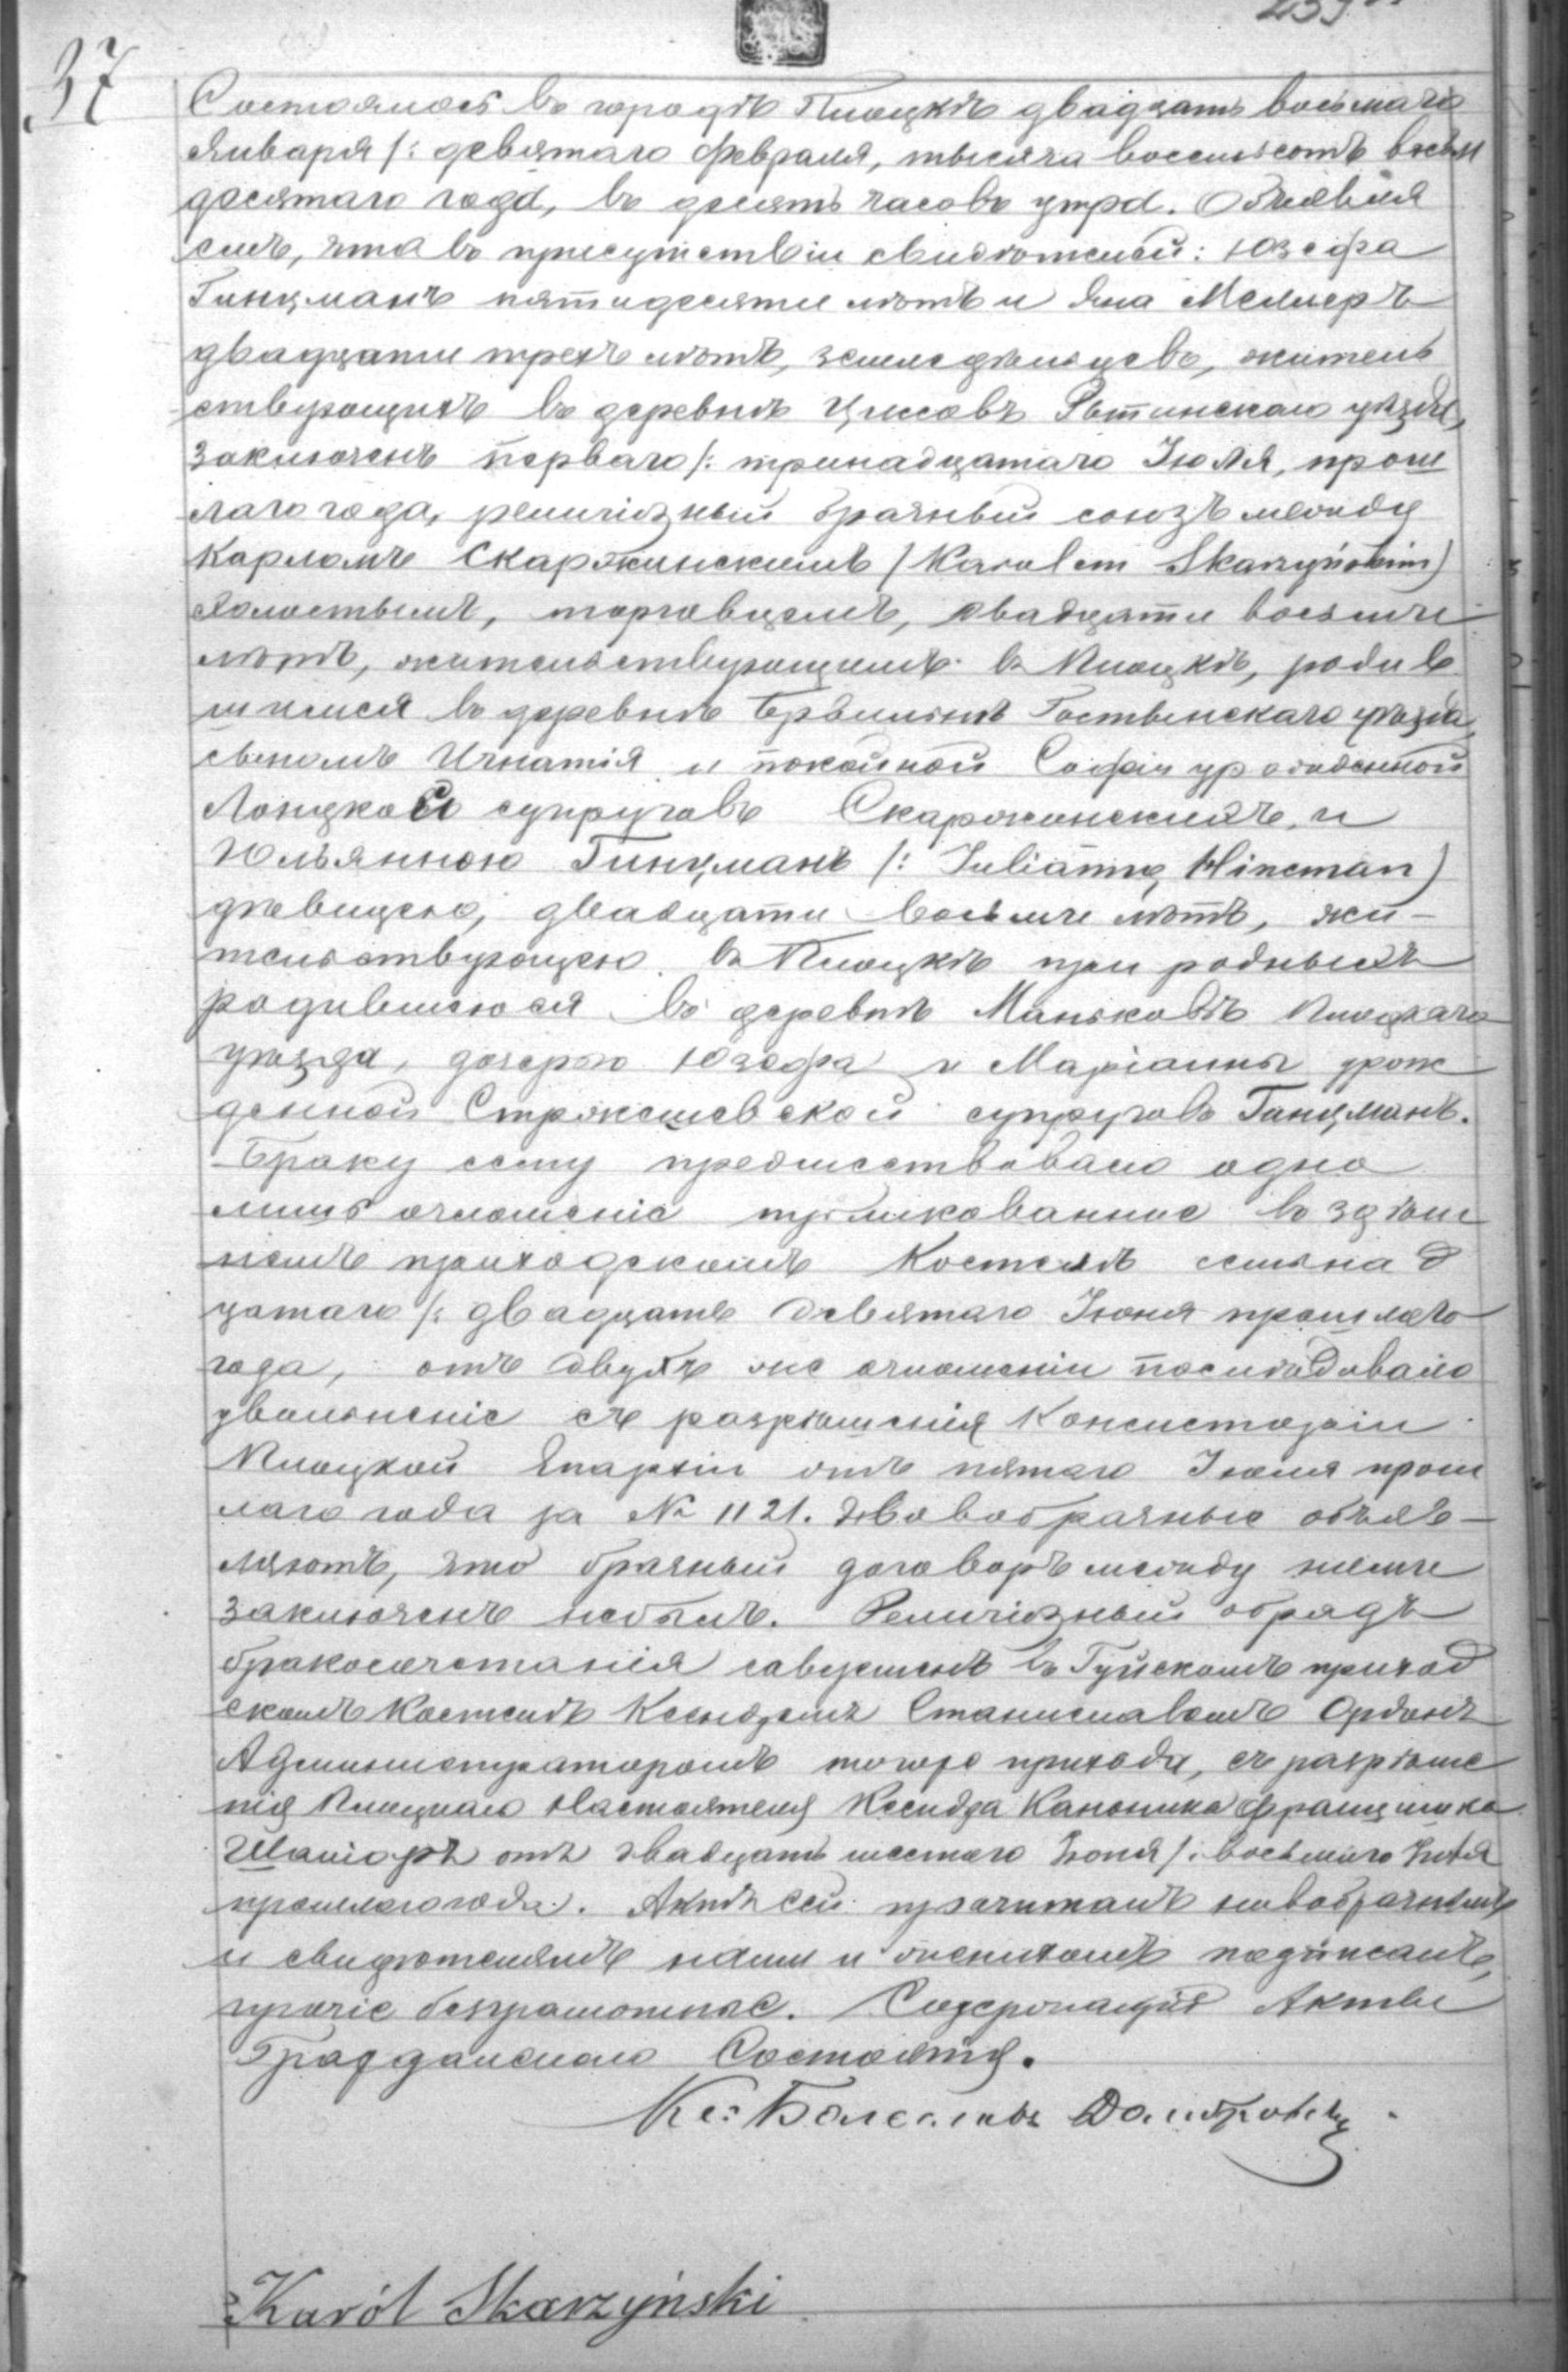 37
Состоялось въ городѣ Плоцкѣ двадцать восьмаго
Января /: девятаго Февраля, тысяча восемьсотъ восьм
десятаго года, въ десять часовъ утра. Объявля
емъ, что въ присутствіи свидѣтелей: Юзефа
Гинцманъ пятидесяти лѣтъ и Яна Меллеръ
двадцати трехъ лѣтъ, земледѣльцевъ, житель
ствующихъ въ деревнѣ уѣзда,
заключенъ перваго /: тринадцатаго Іюля, прош
лаго года, религіозный брачный союзъ между
Карломъ Скаржинскимъ /Karolem Skarzyńskim)
холостымъ, торговцемъ, двадцати восьми
лѣтъ, жительствующимъ въ Плоцкѣ, родив
шимся въ деревнѣ Гостынскаго уѣзда,
сыномъ Игнатія и покойной Софіи урожденной
Лонцкой супруговъ Скаржинскихъ, и
Юльянною Гинцманъ /: Julianną Hincman)
дѣвицею, двадцати восьми лѣтъ, жи-
тельствующею въ Плоцкѣ при родныхъ
родившеюся въ деревнѣ Маньковѣ Плоцкаго
уѣзда, дочерью Юзефа и Маріанны урож
денной Стржешевской супруговъ Гинцманъ.
Браку сему предшествовало одно
лишь оглашеніе публикованное въ здѣш
немъ приходскомъ Костелѣ семнад
цатаго /: двадцать девятаго Іюня прошлаго
года, отъ двухъ же оглашеній послѣдовало
увольненіе съ разрѣшенія Консисторіи
Плоцкой Епархіи отъ пятаго Іюля прош
лаго года за № 1121. Новобрачные объяв-
ляютъ, что брачный договоръ между ними
заключенъ небылъ. Религіозный обрядъ
бракосочетанія совершенъ въ приход
скомъ Костелѣ Ксендземъ Станиславомъ
Администраторомъ тогоже прихода, съ разрѣше
нія Плоцкаго Настоятеля Ксендза Каноника Францишка
отъ двадцать шестаго Іюня /: восьмаго Іюля
прошлаго года. Актъ сей прочитанъ новобрачнымъ
и свидѣтелямъ нами и женихомъ подписанъ,
прочіе безграмотные. Содержащій Акты
Гражданскаго Состоянія.
Кс: Болеславъ Домбровскій
Karól Skarzyński